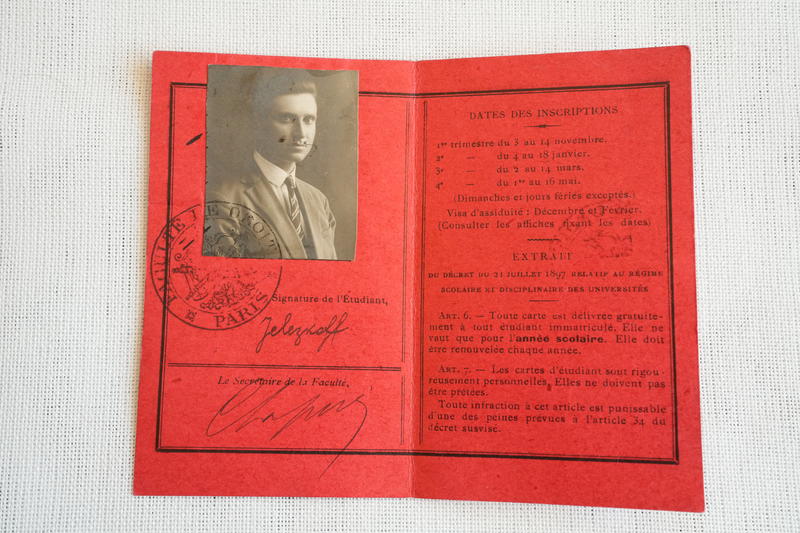 FACULTÉ DE DROIT
PARIS
Signature de l'Étudiant,
Jelezkoff
Le Secrétaire de la Faculté,
DATES DES INSCRIPTIONS
1er trimestre du 3 au 14 novembre.
2e — du 4 au 18 janvier.
3e — du 2 au 14 mars.
4e — du 1er au 16 mai.
(Dimanches et jours fériés exceptés.)
Visa d'assiduité : Décembre et Février.
(Consulter les affiches fixant les dates)
EXTRAIT
DU DÉCRET DU 21 JUILLET 1897 RELATIF AU RÉGIME
SCOLAIRE ET DISCIPLINAIRE DES UNIVERSITÉS
ART. 6. — Toute carte est délivrée gratuite-
ment à tout étudiant immatriculé. Elle ne
vaut que pour l'année scolaire. Elle doit
être renouvelée chaque année.
ART. 7. — Les cartes d'étudiant sont rigou-
reusement personnelles. Elles ne doivent pas
être prêtées.
Toute infraction à cet article est punissable
d'une des peines prévues à l'article 34 du
décret susvisé.